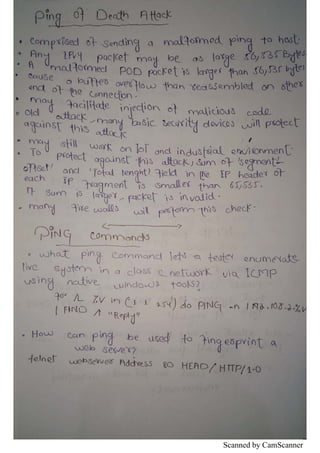 Ping of Death Attack
• Comprised of sending a malformed ping to host.
• Any IPv4 packet may be as large 56,535 Bytes
• A malformed POD packet is larger than 56,535 bytes
• cause a buffer overflow than reassembled on other
end of the connection.
• may facilitate injection of malicious code
• Old attack, many basic security devices will protect
against this attack
• may still work on IoT and industrial environment.
• To protect against this attack, sum of segment
offset! and 'Total lenght! field in the IP header of
each IP fragment is smaller than 65,535.
If sum is larger, packet is invalid.
• many fire walls will perform this check.
PING commands
• what ping command lets a tester enumerate
live system in a class C network via ICMP
using native windows tools?
for /L %V in (1 1 254) do PING -n 1 192.168.2.%V
| FIND /I "Reply"
• How can ping be used to fingerprint a
web server?
telnet webserver Address 80 HEAD / HTTP/1.0
Scanned by CamScanner